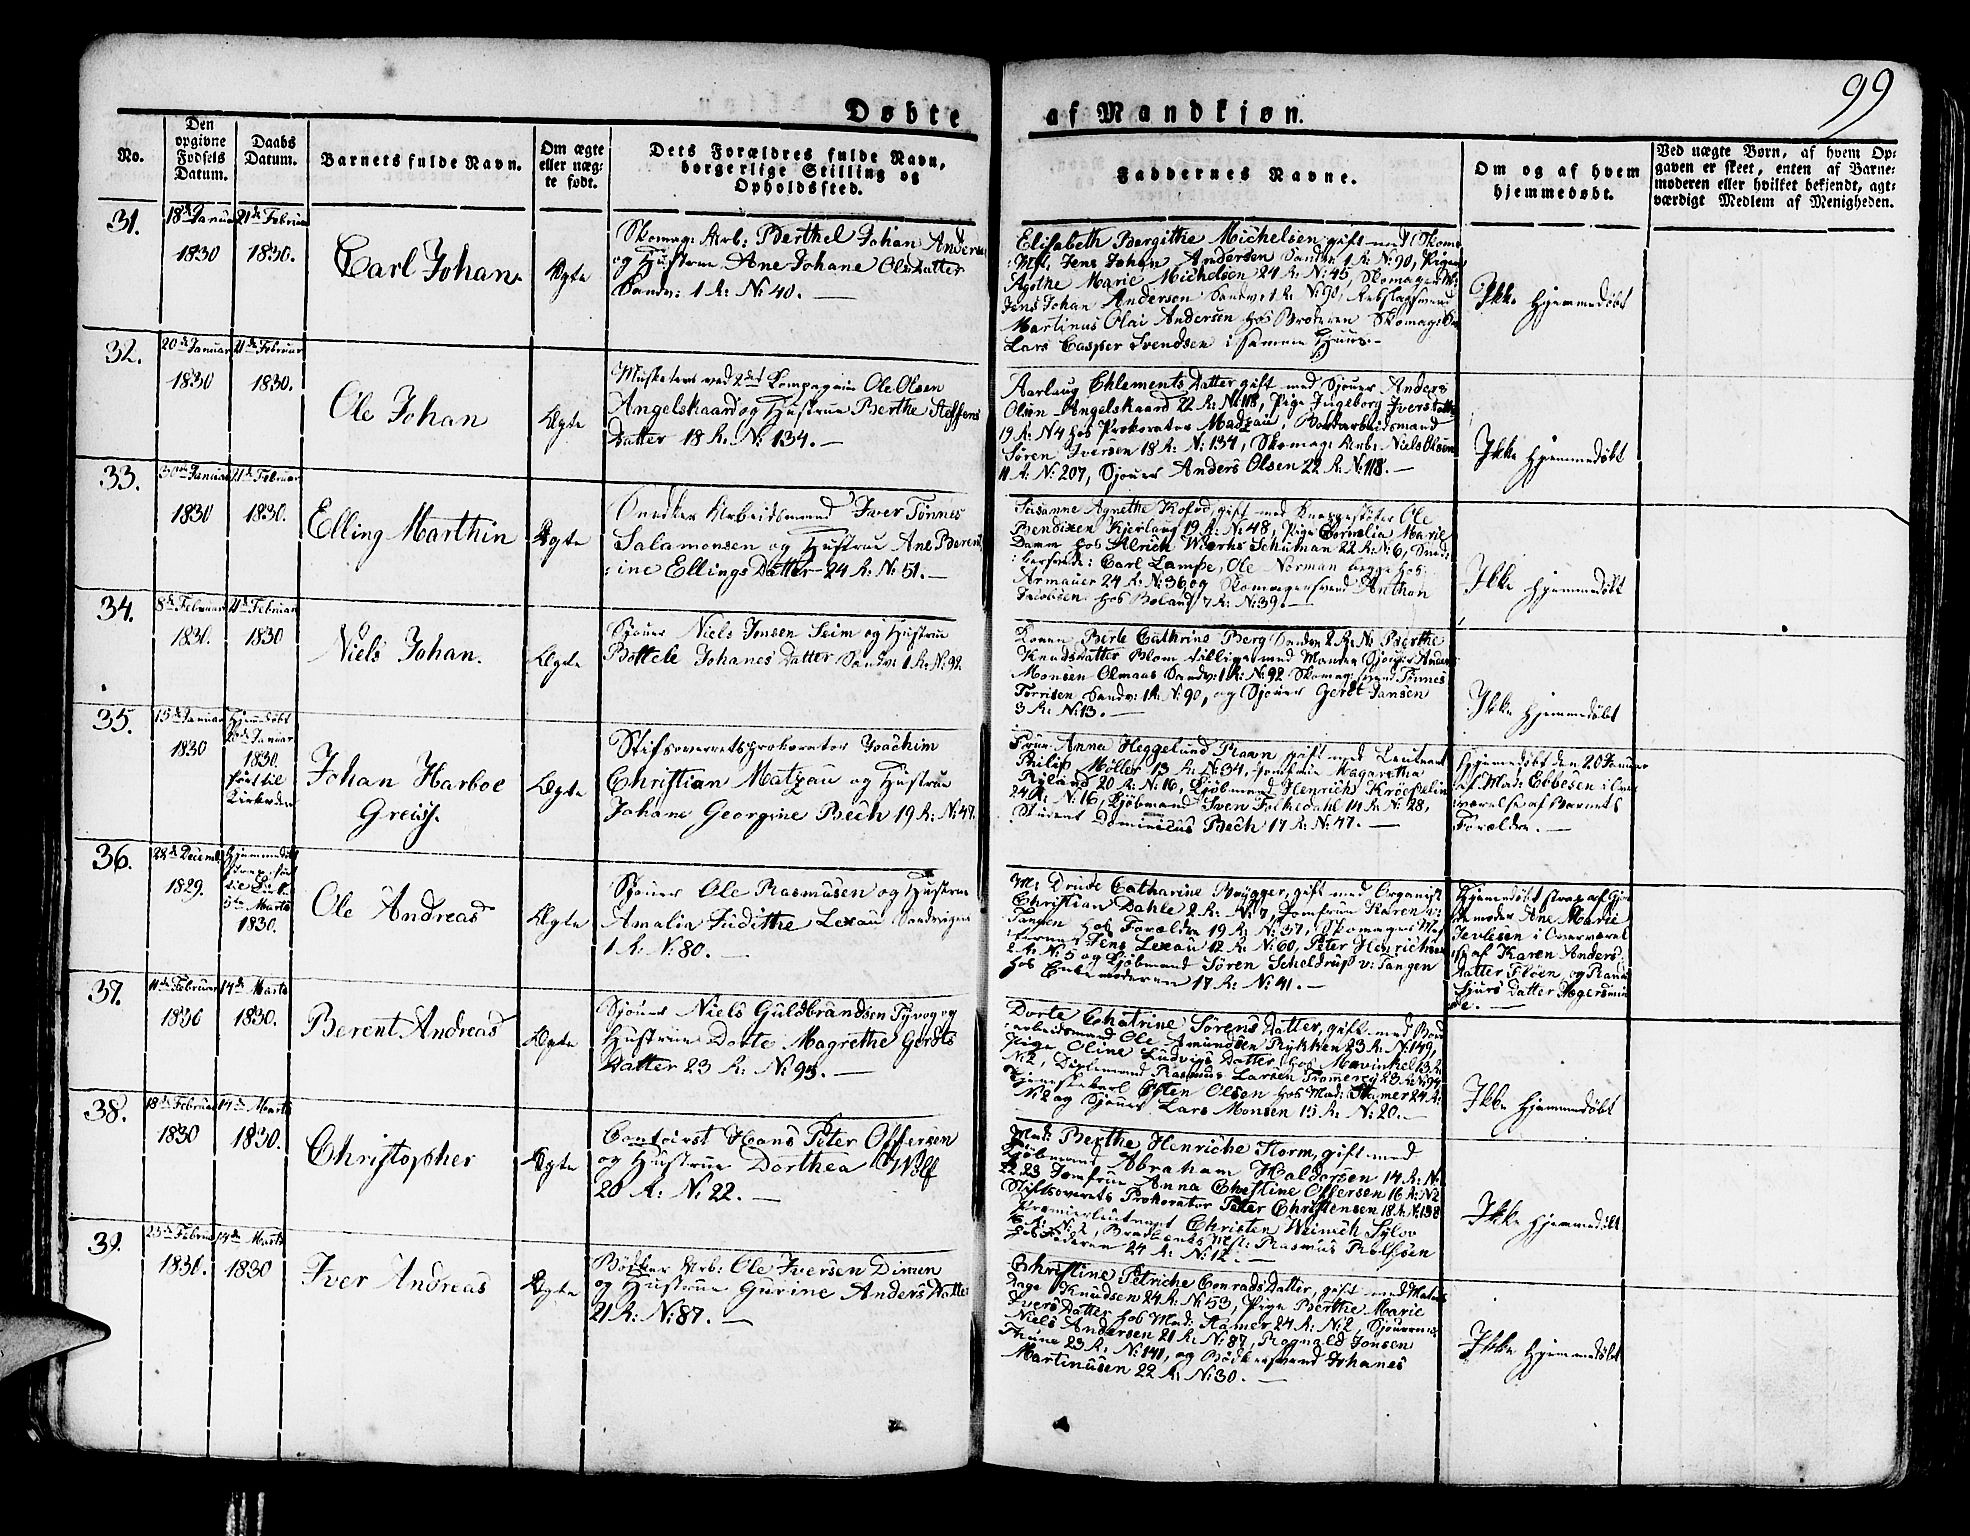 99
Døbte af Mandkjøn.
No.
Den opgivne Fødsels Datum.
Daabs Datum.
Barnets fulde Navn.
Om ægte eller uægte født.
Dets Forældres fulde Navn, borgerlige Stilling og Opholdssted.
Faddernes Navne.
Om og af hvem hjemmedøbt.
Ved uægte Børn, af hvem Op-
gaven er skeet, enten af Barne-
moderen eller hvilket bekjendt, agt-
værdigt Medlem af Menigheden.
31.
18de Januar
1830
21de Februar
1830.
Carl Johan
Ægte
Skomag: Arb: Berthel Johan Andersen
og Hustrue Ane Johane OlsDatter
Sandv: 1 R: N: 40.
Elisabeth Bergithe Michelsen gift med Skoma
Mst. Jens Johan Andersen Sandv: 1 R: N: 90, Pigen
Agethe Marie Michelsen 24 R: N: 45, Skomager M:
Jens Johan Andersen Sandv: 1 R: N: 90, Rebslagersvend
Martinus Olai Andersen hos Broderen Skomag: S
Lars Casper Svendsen i samme Huus.
Ikke Hjemmedøbt
32.
20de Januar
1830
21de Februar
1830.
Ole Johan
Ægte
Musketeer ved 2det Compagnie Ole Olsen
Angelskaard og Hustrue Berthe Steffens
Datter 18 R: N: 134.
Aarlaug ChlementsDatter gift med Sjouer Anders
Olsen Angelskaard 22 R: N: 118, Pige Ingeborg IversDatter
19 R: N 4 hos Prokorator Madzau, Bordarbeidsmand
Søren Iversen 18 R: N: 134, Skomag: Arb: Niels Olsen
11 R: N: 207, Sjouer Anders Olsen 22 R: N: 118.
Ikke Hjemmedøbt
33.
30te Januar
1830
21de Februar
1830.
Elling Marthin
Ægte
Snedker Arbeidsmand Iver Tønnes
Salamonsen og Hustrue Ane Berent
ine EllingsDatter 24 R: N: 51.
Susanne Agnethe Kofod, gift med
Bendixen Kjerlaug 19 R: N: 48, Pige Cornelia Marie
Damm hos Ulrich Wierks Schuman 22 R: N: 6, Sned:
kersvende: Carl Lampe, Ole Norman begge hos
Armauer 24 R: N: 36 og Skomagersvend Anthon
Jacobsen hos Boland 7 R: N: 39.
Ikke Hjemmedøbt
34.
8de Februar
1830.
21de Februar
1830
Niels Johan.
Ægte
Sjouer Niels Jonsen Seim og Hustrue
Bottele JohanesDatter Sandv: 1 R: N: 92.
Konen Berte Cathrine Berg Sandv: 2 R: N: Berthe
KnudsDatter Blom tilligemed Manden Sjouer Anders
Monsen Olmaas Sandv: 1 R: N: 92 Skomag: svend Tønnes
Torrisen Sandv: 1 R: N: 90, og Sjouer Gerdt Jansen
3 R: N: 13.
Ikke Hjemmedøbt
35.
15de Januar
1830
Hjemdøbt
20de Januar
1830.
Johan Harboe
Greiss.
Ægte
Stiftsoverretsprokorator Joachim
Christian Matzau og Hustrue
Johane Georgine Bech 19 R: N: 47.
Frue Anna Heggelund Ravn gift med Lieutnant
Philip Møller 13 R: N: 34, Jomfrue Magaretha
Ryland 20 R: N: 16, Kjøbmænd Henrich Krøepelin
24 R: N: 16, Kjøbmand Sven Folkedahl 14 R: N: 28,
Student Dominicus Bech 17 R: N: 47.
Hjemmedøbt den 20 Januar
af Mad: Ebbesen i Over
værelse af Barnets
Forældre.
36.
28de Decembr
1829.
Hjemmedøbt
strax
Marts
1830.
Ole Andreas
Ægte
Sjouer Ole Rasmusen og Hustrue
Amalia Judithe Lexau Sandvigen
1 R: N: 80.
M: Drude Catharine Brygger, gift med Organist
Christian Dahle 2 R: N: 7, Jomfrue Karen v:
Tangen hos Forældre 19 R: N: 37, Skomager Mst
Jens Lexau 12 R: N: 60, Peter Henrichsen
2 R: N: 5 og Kjøbmand Søren Scheldrup v: Tangen
hos Enkemoderen 17 R: N: 41.
Hjemmedøbt strax af Gjor
demoder Ane Marie
Jevlesen i Overværel
se af Karen Anders
Datter Fløen og Randi
SjursDatter
37.
11de Februar
1830
14de Marts
1830.
Berent Andreas
Ægte
Sjouer Niels Guldbrandsen Tyvog og
Hustrue Dorte Magrethe Gerdts
Datter 23 R: N: 95.
Dorte Chatrine SørensDatter, gift med Bord
arbeidsmand Ole Amundsen Rykken 23 R: N: 149,
Pige Oline LudvigsDatter hos Mowinkel 13 R:
N: 2, Rasmus Larsen Trommerey 23 R: N: 94
Tjenestekarl Østen Olsen hos Mad: Stamer 24 R:
N: 2 og Sjouer Lars Monsen 15 R: N: 20.
Ikke Hjemmedøbt
38.
18de Februar
1830
14de Marts
1830.
Christopher
Ægte
Contoirst Hans Peter Offersen
og Hustrue Dorthea Wolf
20 R: N: 22.
Mad: Berthe Henriche Storm, gift med
Kjøbmand Abraham Haldorsen 14 R: N:
22, Jomfrue Anna Chestine Offersen 16 R: N: 2
Stiftsoverets Prokorator Peter Christensen 18 R: N: 138
Premierlieutnant Christen Weinich Sylov
Rasmus Rolfsen
hos Faderen 24 R: N: 12.
Ikke Hjemmedøbt
39.
23de Februar
1830.
14de Marts
1830
Iver Andreas
Ægte
Bødker Arb: Ole Iversen Dimen
og Hustrue Gurine AndersDatter
21 R: N: 87.
Christine Petriche ConradsDatter, gift med Matros
Dage Knudsen 24 R: N: 53, Pige Berthe Marie
IversDatter hos Mad: Stamer 24 R: N: 2, Sjouerne
Niels Andersen 21 R: N: 87, Rognald Jonsen
Thune 23 R: N: 141, og Bødkersvend Johanes
Martinusen 22 R: N: 30.
Ikke Hjemmedøbt